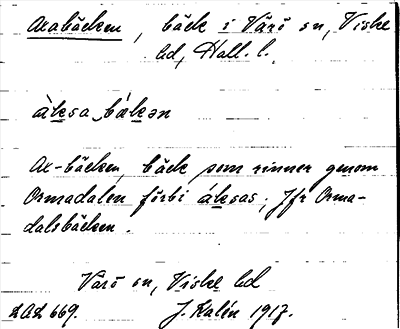 Axabäcken, bäck i Värö sn, Viske
hd, Hall. l.
àksa bäkən
Ax-bäcken, bäck som rinner genom
Ormadalen förbi áksas; Jfr Orma-
dalsbäcken.
Värö sn, Viske hd
LAL 669. J. Kalén 1917.